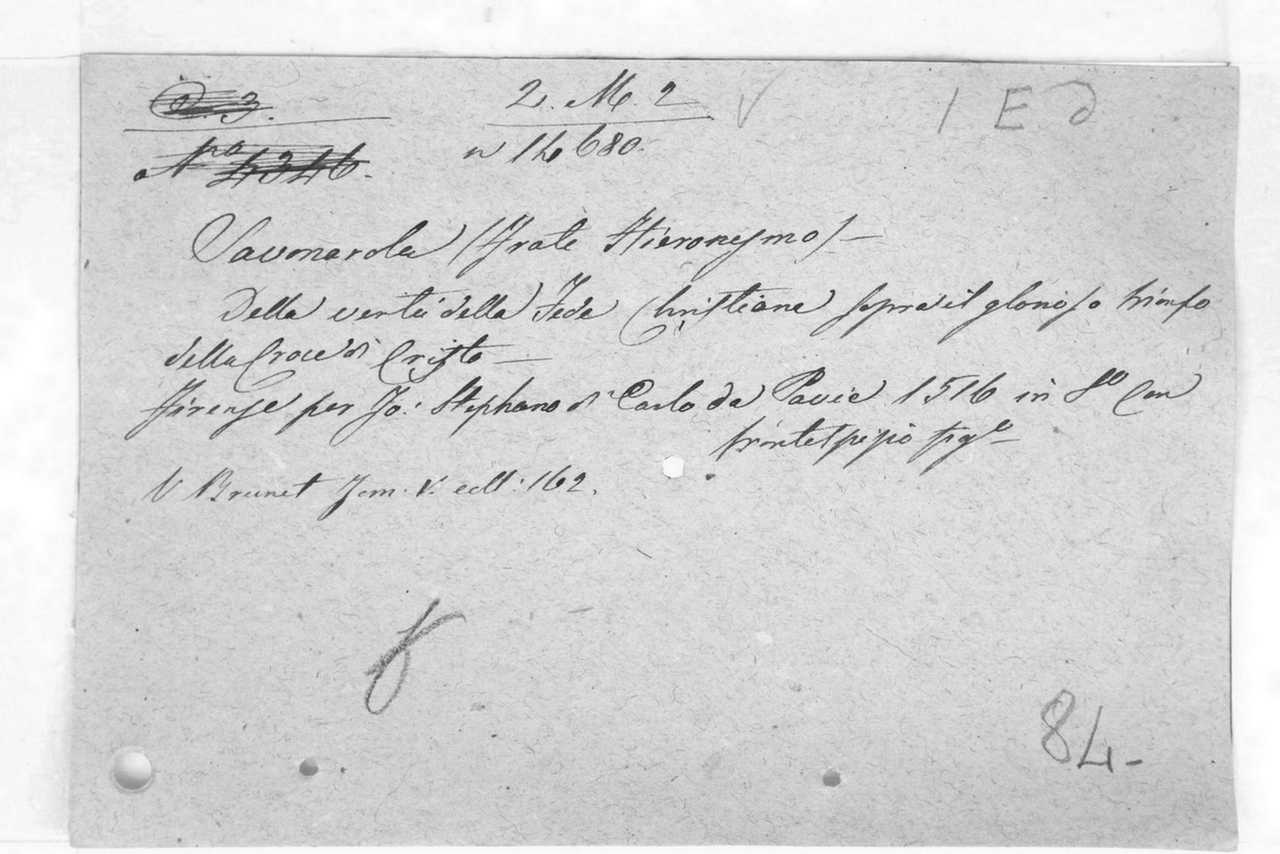 D. 3.
2. M. 2
1 E d
Nro 4346.
n 14680.
Savonarola (Frate Hieronymo) —
Della verta della Fede Christiane sopra il glorioso trionfo
della Croce di Cristo —
Firenze per Jo: Stephano di Carlo da Pavie 1516 in 8º Con
frontespizio figº —
V Brunet Tom. V. coll: 162.
84.-